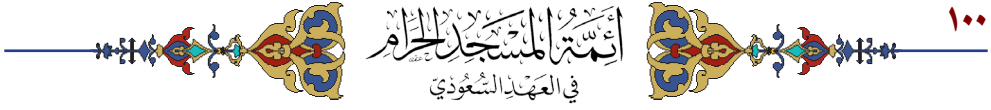 ١٠٠
أَئِمَّةُ المَسْجِدِ الحَرَامِ
في العَهْدِ السُّعُودِيّ